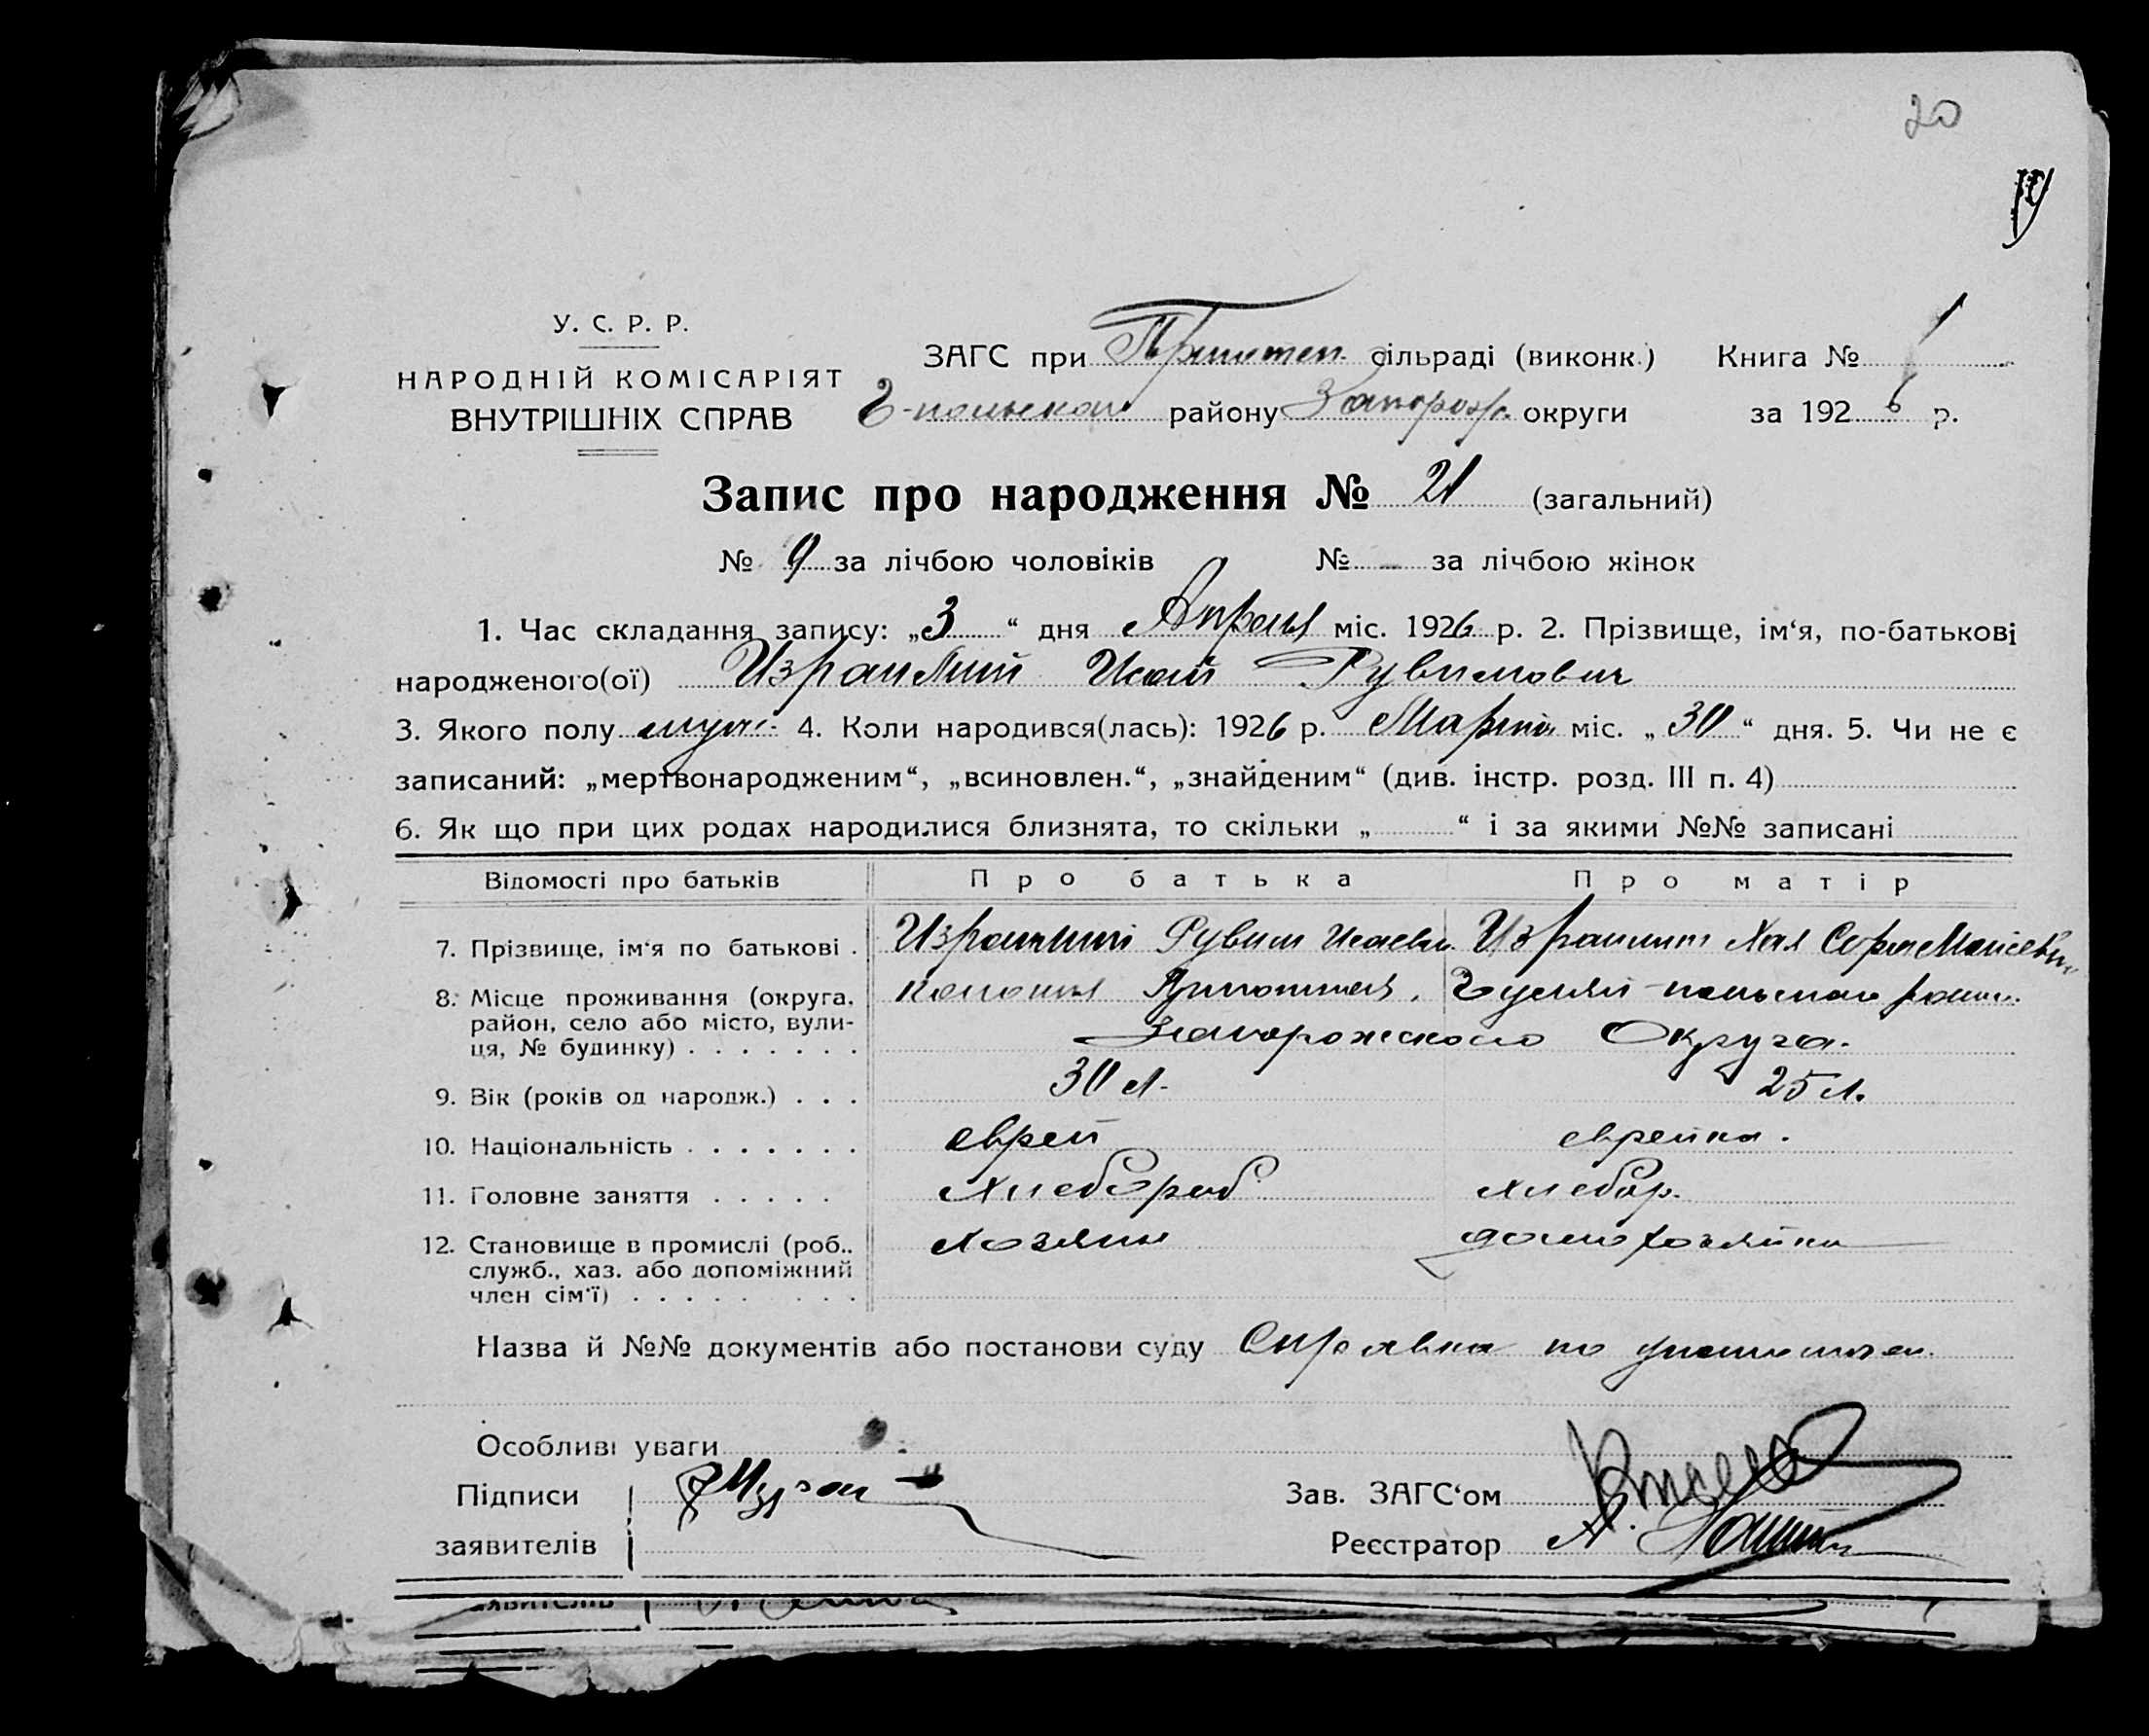 20
У. С. Р. Р.
НАРОДНІЙ КОМІСАРІЯТ
ВНУТРІШНІХ СПРАВ
ЗАГС при сільраді (виконк.) Книга № 1
Г-польского району Запорож. округи за 1926 р.
Запис про народження № 21 (загальний)
№ 9 за лічбою чоловіків № – за лічбою жінок
1. Час складання запису: „3“ дня Апреля міс. 1926 р. 2. Прізвище, ім‘я, по-батькові
народженого(ої) Израилит Исай Рувимович
3. Якого полу муж. 4. Коли народився(лась): 1926 р. Марта міс. „30“ дня. 5. Чи не є
записаний: „мертвонародженим“, „всиновлен.“, „знайденим“ (див. інстр. розд. III п. 4)
6. Як що при цих родах народилися близнята, то скільки „ “ і за якими №№ записані
Відомості про батьків Про батька Про матір
7. Прізвище, ім‘я по батькові . Рувим Исаев. Хая Сора Моисеевн
8. Місце проживання (округа, колония Гуляй-польского район.
район, село або місто, вули- Запорожского Округа.
ця, № будинку) . . . . . . .
9. Вік (років од народж.) . . . 30 л. 25 л.
10. Національність . . . . . . . еврей еврейка.
11. Головне заняття . . . . . Хлебороб Хлебор.
12. Становище в промислі (роб., Хозяин домохозяйка
служб., хаз. або допоміжний
член сім‘ї) . . . . . . . .
Назва й №№ документів або постанови суду Справка
Особливі уваги
Підписи Зав. ЗАГС‘ом
заявителів Реєстратор А.
заявителів